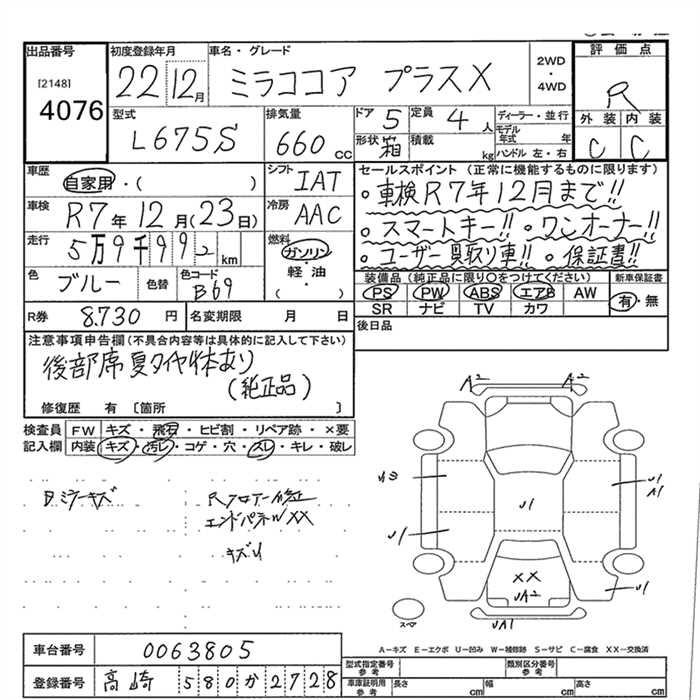 出品番号 初度登録年月 車名・グレード 評価点
[2148] 4076 22 12月 ミラココア プラスX 2WD・4WD R
型式 排気量 ドア 5 定員 4人 ディーラー・並行 外装 内装
L675S 660cc 形状 箱 積載 kg モデル年式 年 ハンドル 左・右 C C
車歴 自家用・( ) シフト IAT セールスポイント (正常に機能するものに限ります)
車検 R7年12月(23日) 冷房 AAC 。車検R7年12月まで!!
走行 5万9千99 km 燃料 ガソリン・軽油・( ) 。スマートキー!! 。ワンオーナー!!
色 ブルー 色替 色コード B69 。ユーザー買取り車!! 。保証書!!
装備品 (純正品に限り○をつけてください) 新車保証書
PS PW ABS エアB AW 有・無
SR ナビ TV カワ
R券 8.730円 名変期限 月 日 後日品
注意事項申告欄 (不具合内容等は具体的に記入して下さい)
後部席夏タイヤ4本あり
(純正品)
修復歴 有 [箇所 ]
検査員 FW キズ・飛石・ヒビ割・リペア跡・×要
記入欄 内装 キズ・汚レ・コゲ・穴・スレ・キレ・破レ
A2 A2
Rフロアー修正
エンドパネルXX
キズU
U1
U1
A1
U1
U1
XX
UA2
U1
UA1
A-キズ E-エクボ U-凹み W-補修跡 S-サビ C-腐食 XX-交換済
車台番号 0063805
登録番号 高崎 580 か 2728
型式指定番号 参考 類別区分番号 参考
車庫証明用 参考 長さ cm 幅 cm 高さ cm